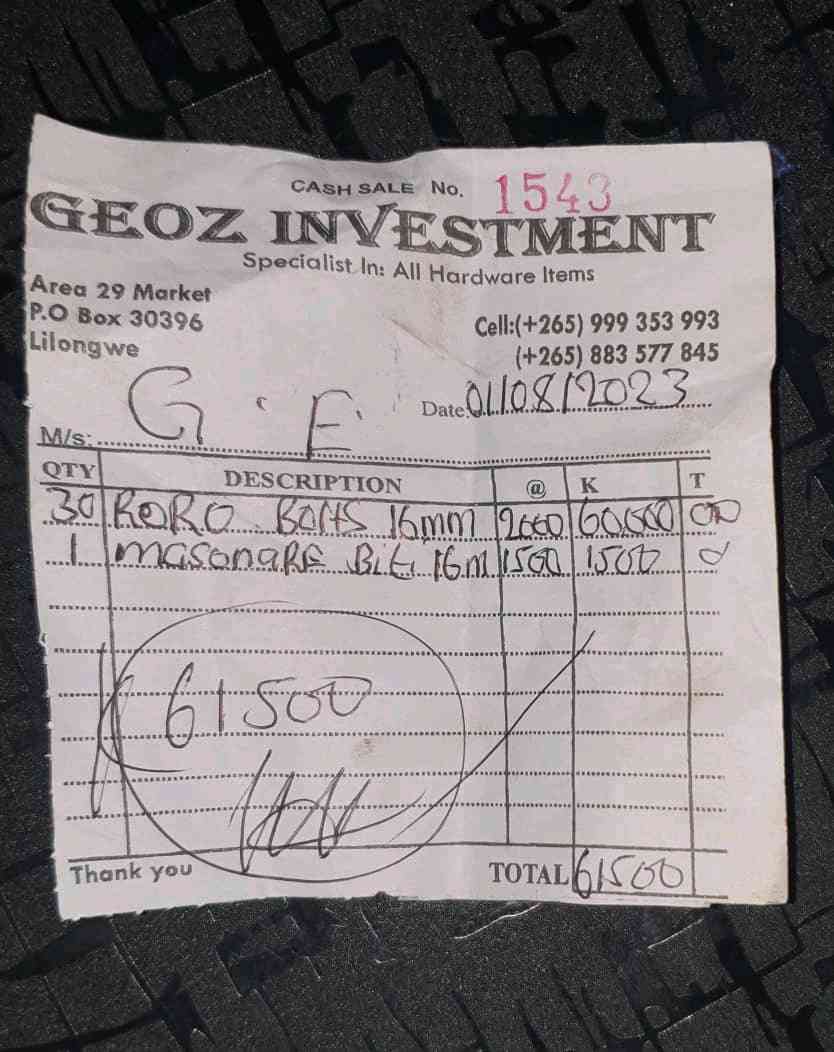 CASH SALE No. 1543
GEOZ INVESTMENT
Specialist In: All Hardware Items
Area 29 Market
P.O Box 30396
Lilongwe
Cell:(+265) 999 353 993
(+265) 883 577 845
Date: 01/08/2023
M/s: G.E
QTY DESCRIPTION @ K T
30 RORO Bolts 16mm 2000 60,000 00
1 masonaRE Bit 16m 1500 1500
61500
Thank you TOTAL 61500